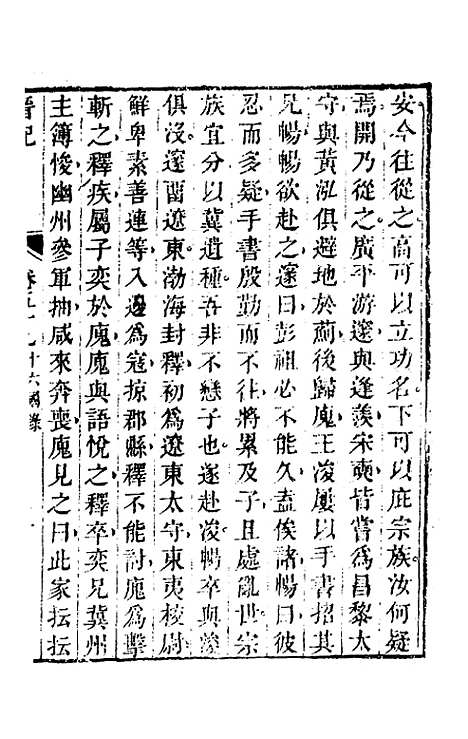 安今往從之高可以立功名下可以庇宗族汝何疑
焉開乃從之廣平游邃與逢羨宋奭皆嘗爲昌黎太
守與黃泓俱避地於薊後歸廆王浚屢以手書招其
兄暢暢欲赴之邃曰彭祖必不能久盍俟諸暢曰彼
忍而多疑手書殷勤而不往將累及子且處亂世宗
族宜分以冀遺種吾非不戀子也遂赴浚暢卒與浚
俱沒邃留遼東渤海封釋初爲遼東太守東夷校尉
鮮卑素善連等入邊爲寇掠郡縣釋不能討廆爲擊
斬之釋疾屬子奕於廆廆與語悅之釋卒奕兄冀州
主簿悛幽州參軍抽咸來奔喪廆見之曰此家抎抎
晉記
卷五十九十六國錄